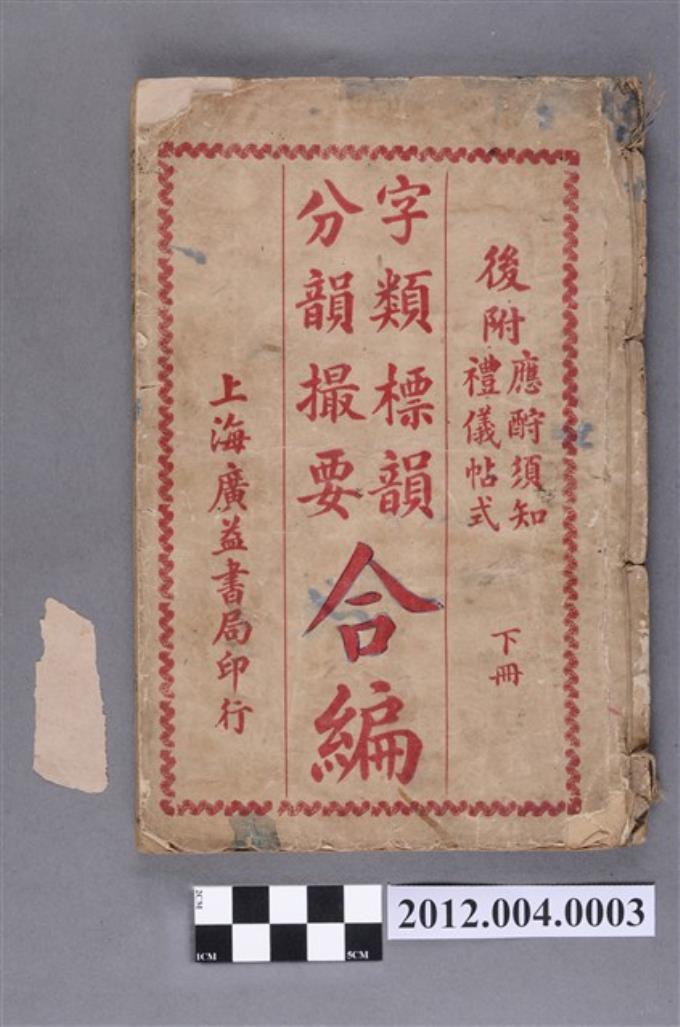 後附
應酧須知
禮儀帖式
下冊
字類標韻
分韻撮要
合編
上海廣益書局印行
2CM
1CM
5CM
2012.004.0003